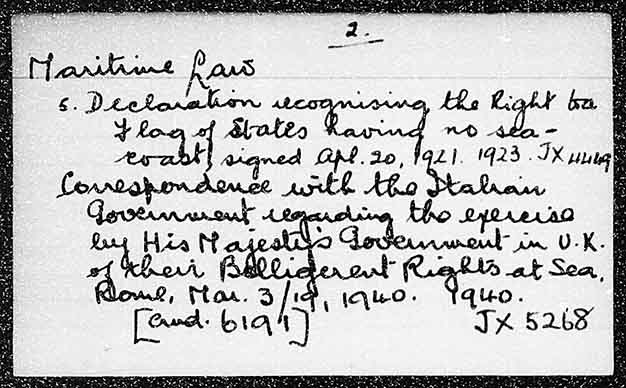 2.
Maritime Law
s. Declaration recognising the Right to a
Flag of States having no sea-
coast, signed Apl. 20, 1921. 1923. JX 4449
Correspondence with the Italian
Government regarding the exercise
by His Majesty's Government in U.K.
of their Belligerent Rights at Sea.
Rome, Mar. 3/19, 1940. 1940.
[Cmd. 6191] JX 5268